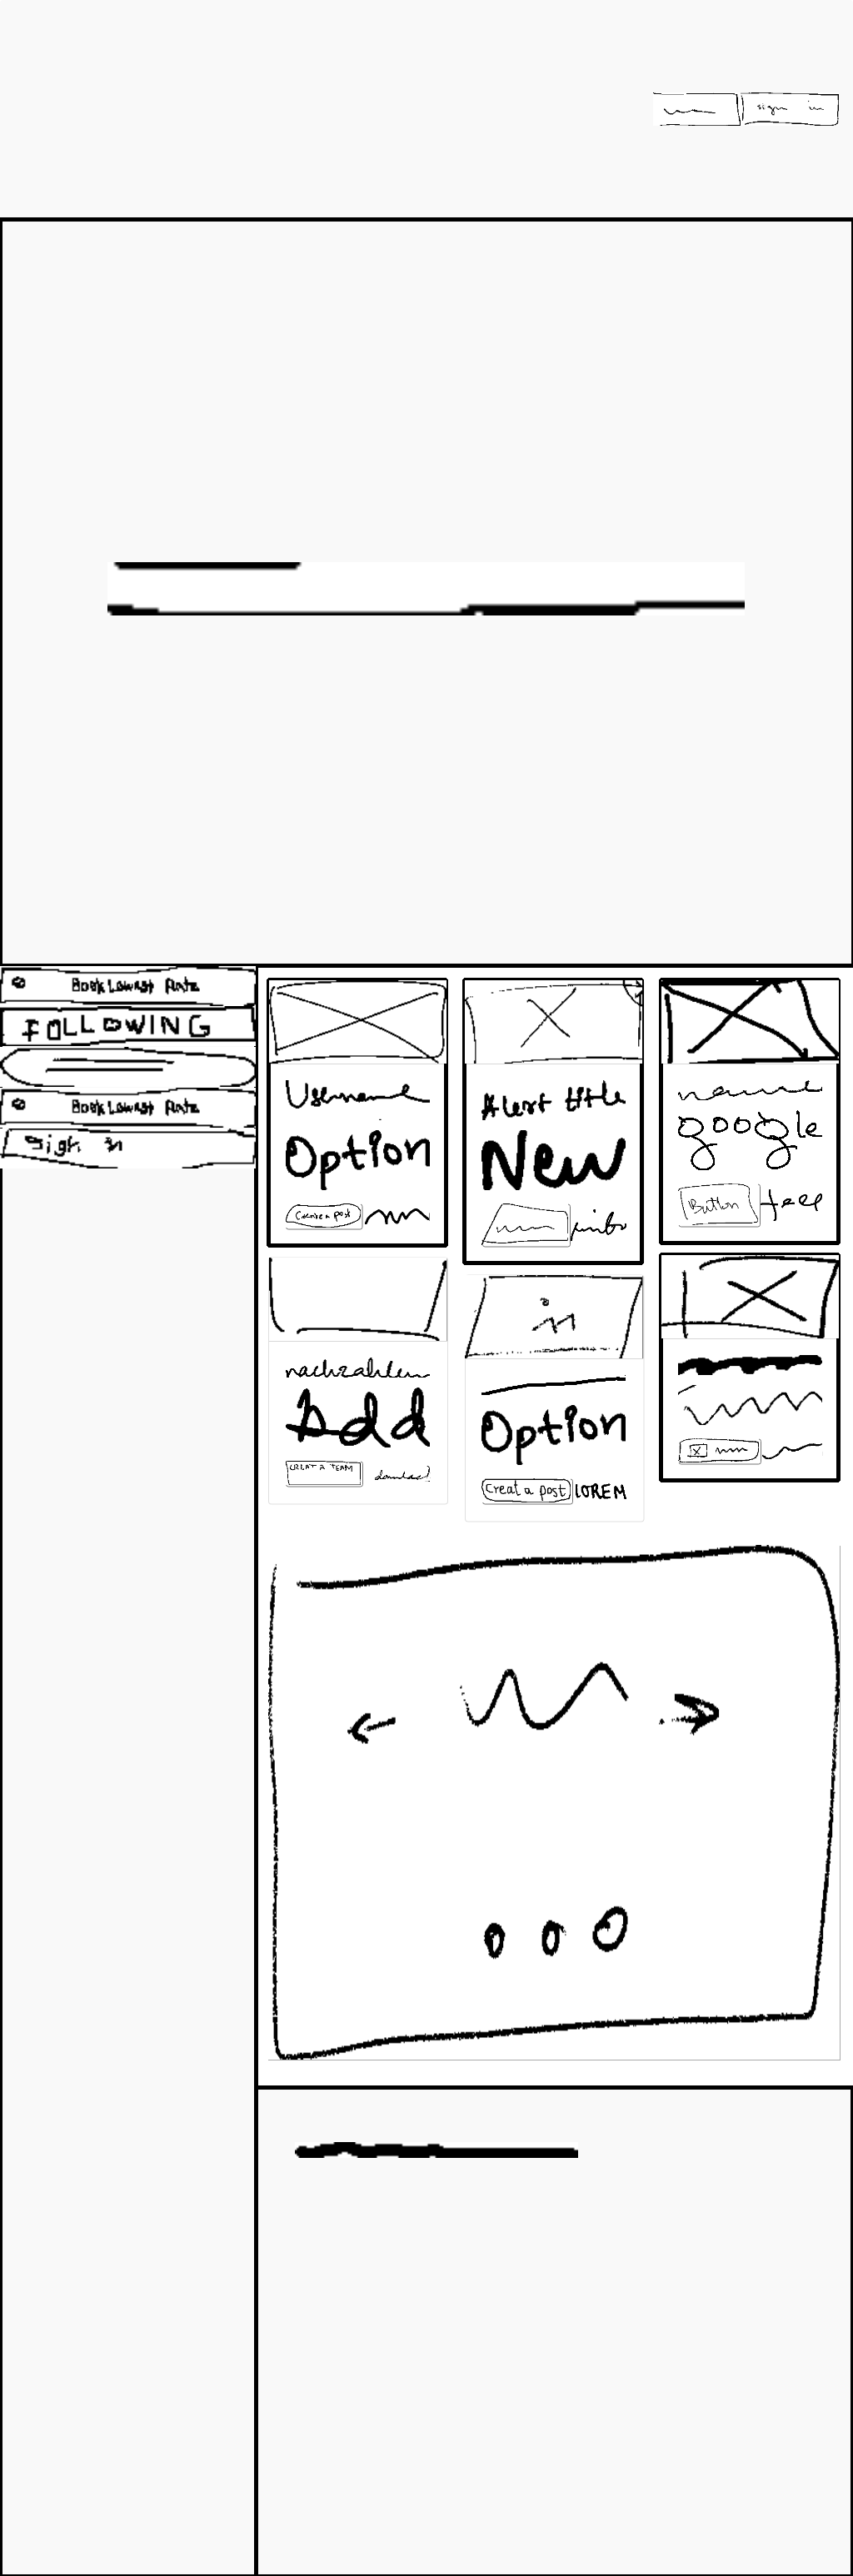 sign in
Book Lowest Rate
FOLLOWING
Book Lowest Rate
Sign in
Username
Option
Create a post
Alert title
New
name
google
Button
nachzahlen
Add
CREAT A TEAM
download
Option
Creat a post
LOREM